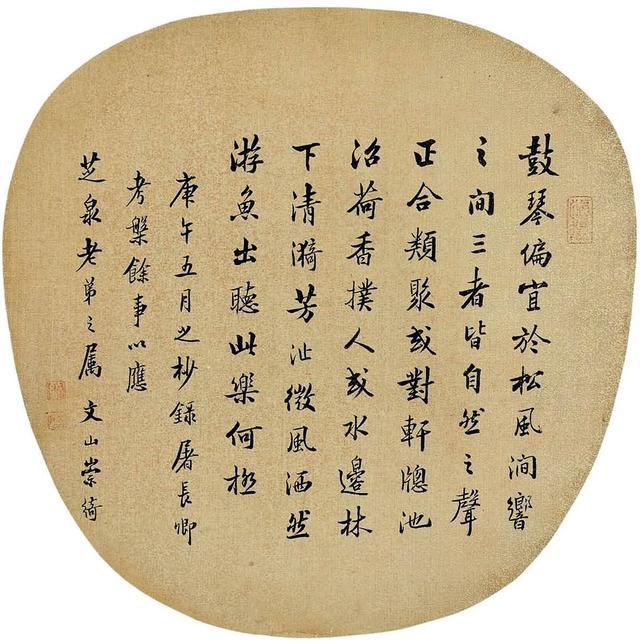 鼓琴偏宜於松風澗響
之間三者皆自然之聲
正合類聚或對軒牕池
沼荷香撲人或水邊林
下清漪芳沚微風洒然
游魚出聽此樂何極
庚午五月之杪錄屠長卿
考槃餘事以應
芝泉老弟之屬 文山崇綺